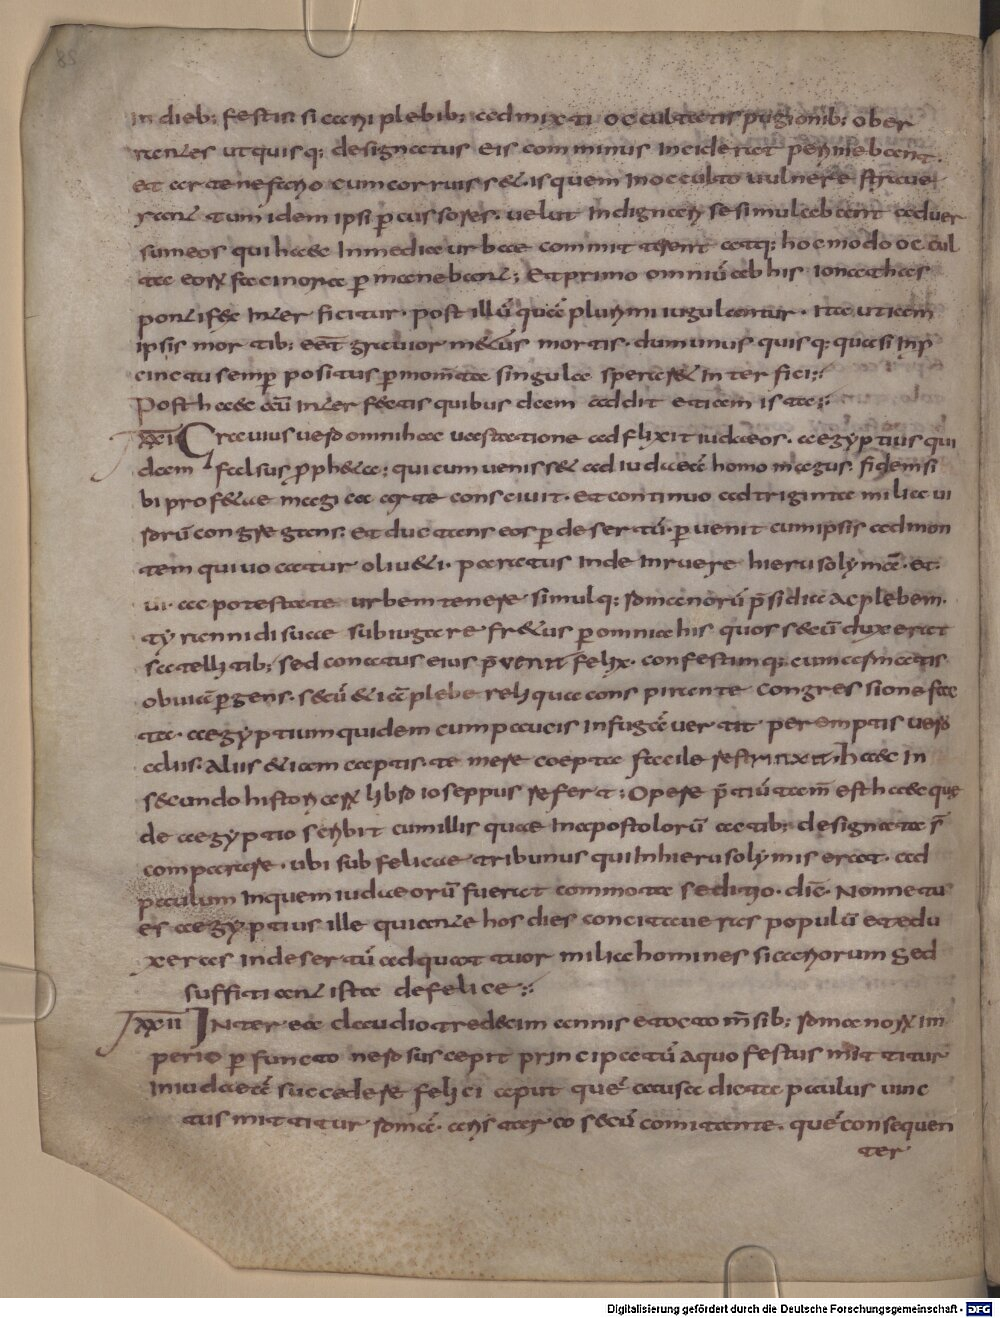 in dieb; festis sicarii plebib; admixti occultatis pugionib; ober
rantes ut quisq; designatus eis comminus inciderat perimebant.
et arte nefario cum corruisset. is quem in occulto vulnere strave
rant tum idem ipsi ꝑcussores. velut indignari se simulabant adver
sum eos qui haec in media urbae committerent atq; hoc modo occul
tae eoꝝ facinora ꝑmanebant; Et primo omniū ab his ionathas
pontifex interficitur. post illū quā plurimi iugulantur. Ita ut iam
ipsis mortib; eēt gravior metus mortis. dum unus quisq; quasi in ꝓ
cinctu semꝑ positus ꝑ mom̄ta singula speraret interfici;
Post haec aū interfectis quibusdam addit etiam ista;
xxi Gravius vero omni hac vastatione adflixit iudaeos. aegyptius qui
dam falsus ꝓpheta; qui cum venisset ad iudaeā homo magus. fidem si
bi profetae magica arte conscivit. et continuo ad triginta milia vi
rorū congregans. et ducens eos ꝑ desertū. ꝑvenit cum ipsis ad mon
tem qui vocatur oliveti. paratus inde inruere hierusolymā. et
vi ac potestate urbem tenere simulq; romanorū p̄sidia ac plebem.
tyrannidi suae subiugare fretus ꝑ omnia his quos secū duxerat
satellitib; sed conatus eius p̄venit felix. confestimq; cum armatis
obviā ꝑgens. secū etiā plebe reliqua conspirante congressione fac
ta. aegyptium quidem cum paucis in fugā vertit peremptis vero
aliis. alius etiam captis. temere coepta facile restrinxit. haec in
secundo historiaꝝ libro ioseppus refert; Opere p̄tiū tam̄ est haec quę
de aegyptio scribit cum illis quae in apostolorū actib; designata s̄
comparare. ubi sub felicae tribunus qui in hierusolymis erat. ad
paulum in quem iudaeorū fuerat commota seditio. dic̄. Nonne tu
es aegyptius ille qui ante hos dies concitaveras populū et edu
xeras in desertū ad quattuor milia homines sicariorum sed
suffitiant ista de felice;
xxii Interea claudio tredecim annis et octo m̄sib; romanoꝝ im
perio ꝑfuncto nero suscepit principatū a quo festus mittitur
in iudaeā succedere felici aput quē accusa dicta paulus vinc
tus mittitur romā. aristarco secū comitante. quē consequen
ter
Digitalisierung gefördert durch die Deutsche Forschungsgemeinschaft - DFG